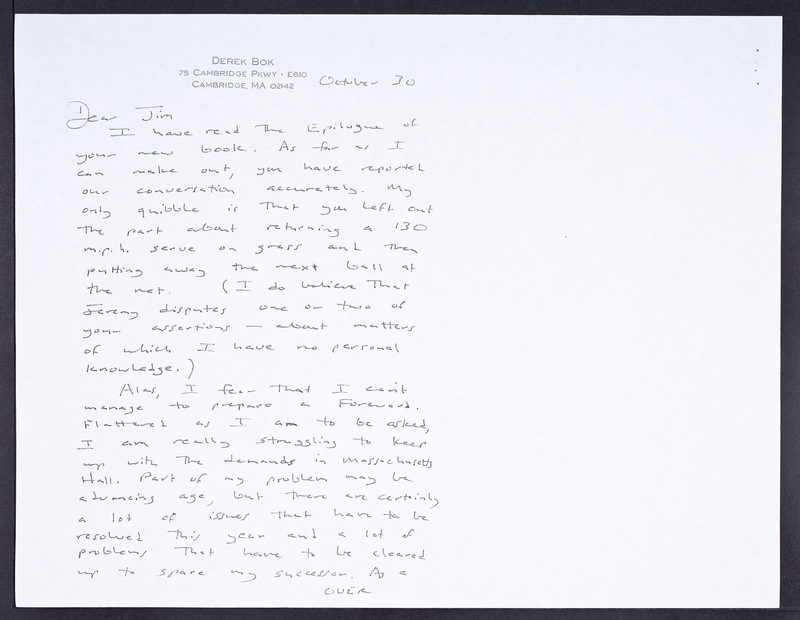 DEREK BOK
75 CAMBRIDGE PKWY • E610
CAMBRIDGE, MA 02142
October 30
Dear Jim
I have read the Epilogue of
your new book. As far as I
can make out, you have reported
our conversation accurately. My
only quibble is that you left out
the part about returning a 130
m.p.h. serve on grass and then
putting away the next ball at
the net. (I do believe that
Jeremy disputes one or two of
your assertions — about matters
of which I have no personal
knowledge.)
Alas, I fear that I can't
manage to prepare a Foreword.
Flattered as I am to be asked,
I am really struggling to keep
up with the demands in Massachusetts
Hall. Part of my problem may be
advancing age, but there are certainly
a lot of issues that have to be
resolved this year and a lot of
problems that have to be cleared
up to spare my successor. As a
OVER